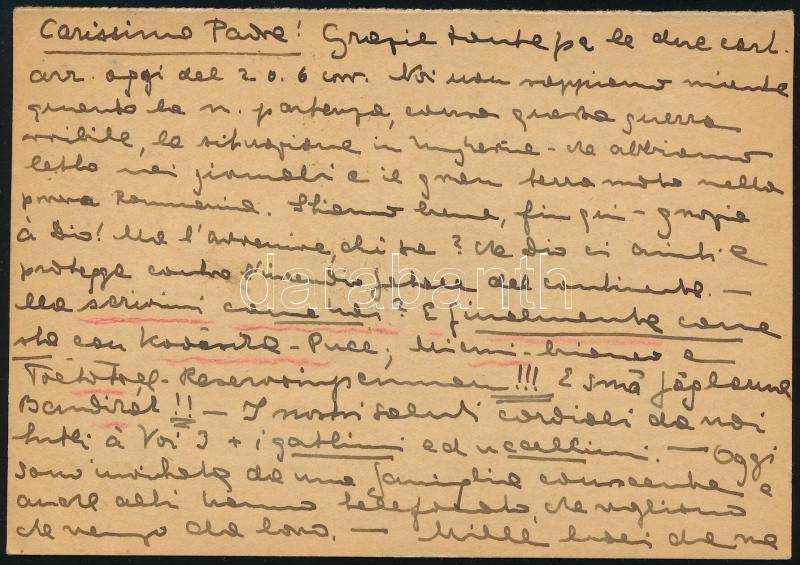 Carissimo Padre! Grazie tante per le due cart.
arr. oggi del 2 o. 6 corr. Noi non sappiamo niente
quanto la n. partenza, causa questa guerra
orribile, la situazione in Ungheria - che abbiamo
letto nei giornali e il gran terramoto nella
povera Rumania. Stiamo bene, fin qui - grazie
à Dio! Ma l'avvenire, chi sa? Che Dio ci aiuti e
protegga contro l'incendio totale del continente. -
Ma scrivimi come 
E finalmente come
sta con -Puce, 
-bianco e
!!! E små
!! - I nostri saluti cordiali da noi
tutti à Voi 3 + i gattini ed uccellini. - Oggi
sono invitata da una famiglia conoscente e
anche altri hanno telefonato, che vogliono
che vengo da loro. - Mille baci da me
darabanth